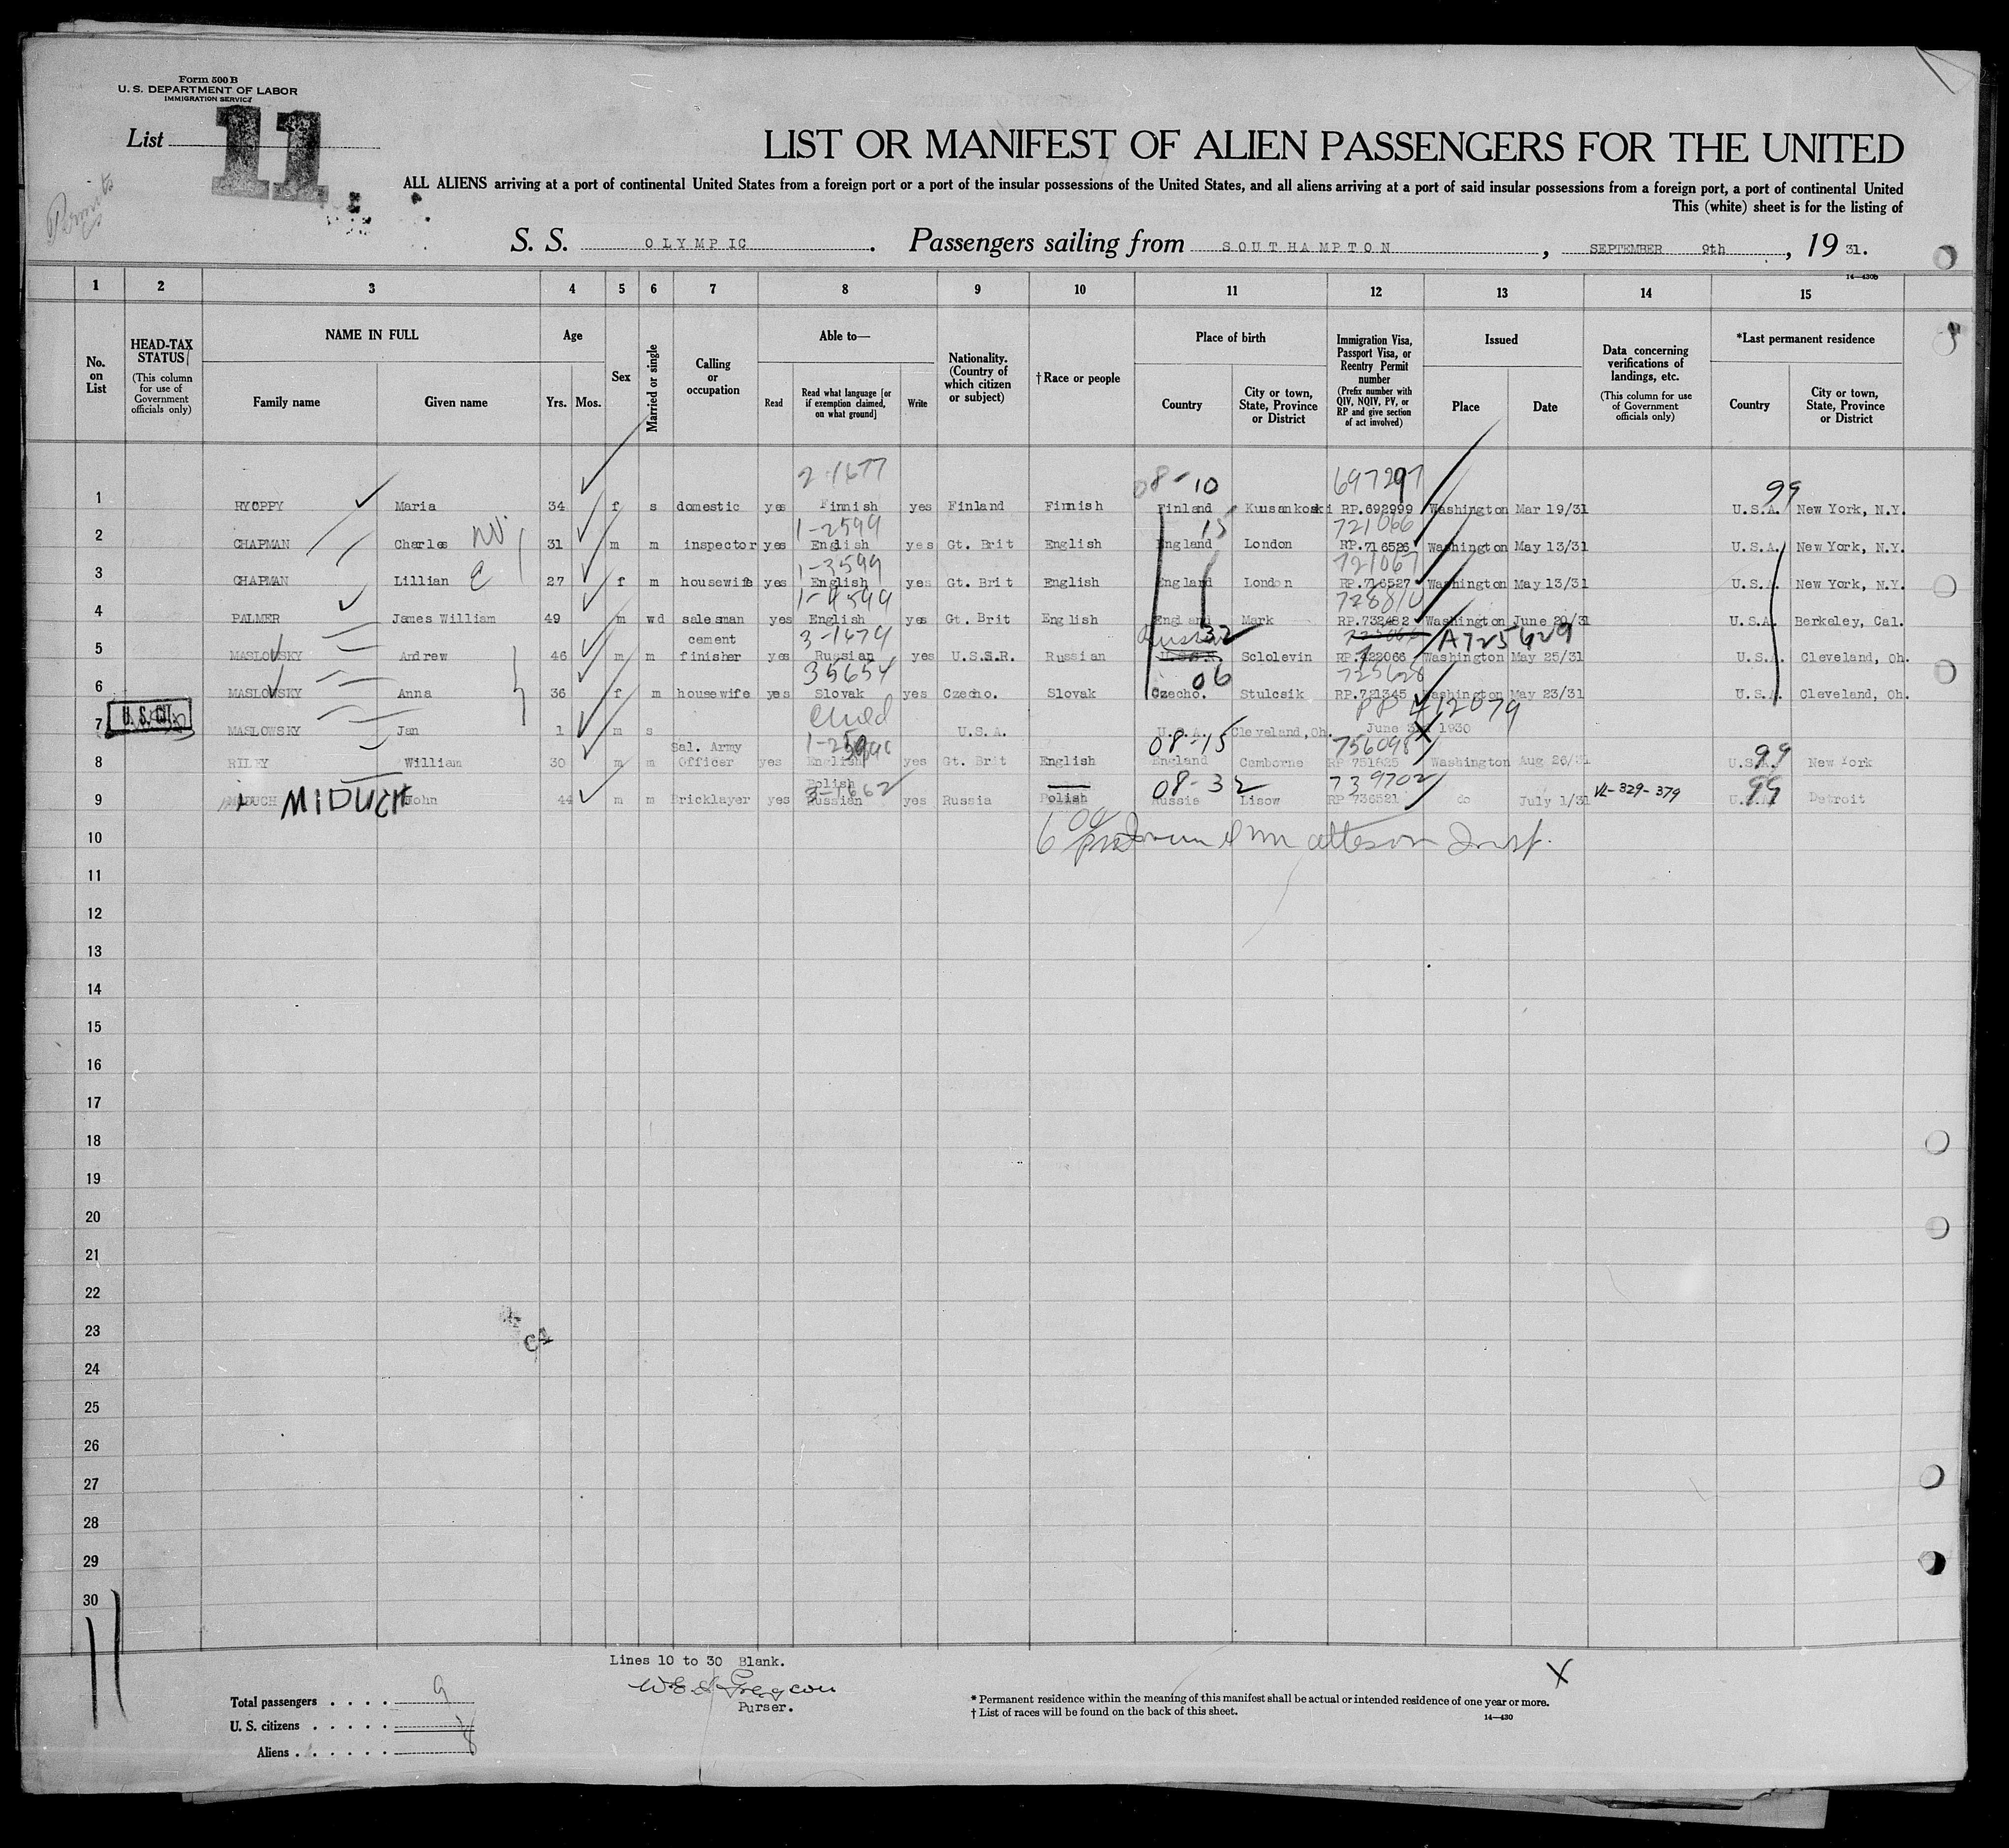 Form 500 B
U. S. DEPARTMENT OF LABOR
IMMIGRATION SERVICE
List 11
Permits
LIST OR MANIFEST OF ALIEN PASSENGERS FOR THE UNITED
ALL ALIENS arriving at a port of continental United States from a foreign port or a port of the insular possessions of the United States, and all aliens arriving at a port of said insular possessions from a foreign port, a port of continental United
This (white) sheet is for the listing of
S. S. OLYMPIC. Passengers sailing from SOUTHAMPTON, SEPTEMBER 9th, 19 31.
14—430b
1 2 3 4 5 6 7 8 9 10 11 12 13 14 15
No. on List
HEAD-TAX STATUS (This column for use of Government officials only)
NAME IN FULL Family name Given name
Age Yrs. Mos.
Sex
Married or single
Calling or occupation
Able to— Read Read what language [or if exemption claimed, on what ground] Write
Nationality. (Country of which citizen or subject)
†Race or people
Place of birth Country City or town, State, Province or District
Immigration Visa, Passport Visa, or Reentry Permit number (Prefix number with QIV, NQIV, PV, or RP and give section of act involved)
Issued Place Date
Data concerning verifications of landings, etc. (This column for use of Government officials only)
*Last permanent residence Country City or town, State, Province or District
2-1677 08-10 697297 99
1 RYOPPY Maria 34 f s domestic yes Finnish yes Finland Finnish Finland Kuusankoski RP.692999 Washington Mar 19/31 U.S.A. New York, N.Y.
1-2599 15 721066
2 CHAPMAN Charles W 31 m m inspector yes English yes Gt. Brit English England London RP.716526 Washington May 13/31 U.S.A. New York, N.Y.
1-3599 721067
3 CHAPMAN Lillian E 27 f m housewife yes English yes Gt. Brit English England London RP.716527 Washington May 13/31 U.S.A. New York, N.Y.
1-4599 728810
4 PALMER James William 49 m wd salesman yes English yes Gt. Brit English England Mark RP.732482 Washington June 20/31 U.S.A. Berkeley, Cal.
cement 3-1479 Russia 32 A725629
5 MASLOWSKY Andrew 46 m m finisher yes Russian yes U.S.S.R. Russian U.S.S.R. Sclolevin RP.422066 Washington May 25/31 U.S.A. Cleveland, Oh.
35654 06 725628
6 MASLOWSKY Anna 36 f m housewife yes Slovak yes Czecho. Slovak Czecho. Stulcsik RP.721345 Washington May 23/31 U.S.A. Cleveland, Oh.
U.S. CIT. child PP 412079
7 MASLOWSKY Jan 1 m s U.S.A. U.S.A. Cleveland, Oh. June 3 X 1930
Sal. Army 08-15 756098 99
8 RILEY William 30 m m Officer yes English yes Gt. Brit English England Camborne RP 751825 Washington Aug 26/31 U.S.A. New York
Polish 3-1662 08-32 739702 99
9 MIDUCH John 44 m m Bricklayer yes Russian yes Russia Polish Russia Lisow RP 736521 do July 1/31 VL-329-379 U.S.A. Detroit
10
11
12
13
14
15
16
17
18
19
20
21
22
23
C4
24
25
26
27
28
29
30
Lines 10 to 30 Blank.
Purser.
Total passengers . . . . 9
U. S. citizens . . . . . 1
Aliens . . . . . . 8
X
* Permanent residence within the meaning of this manifest shall be actual or intended residence of one year or more.
† List of races will be found on the back of this sheet.
14—430